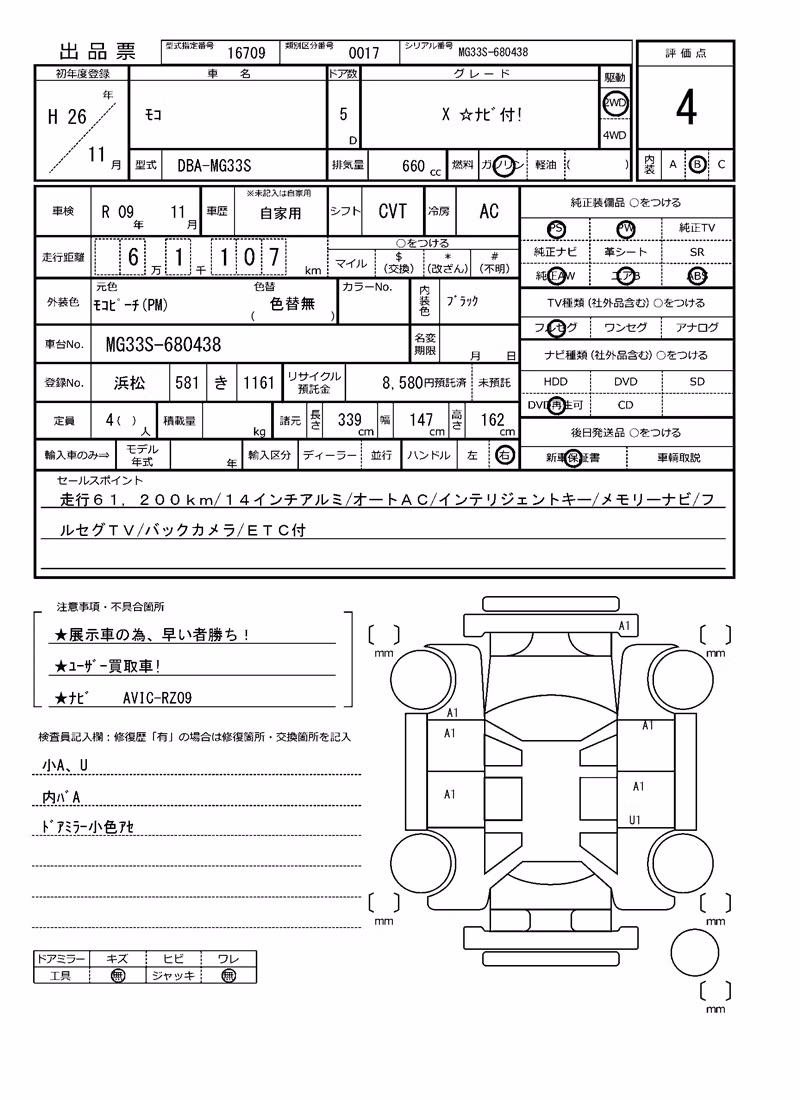 出品票 型式指定番号 16709 類別区分番号 0017 シリアル番号 MG33S-680438
評価点
初年度登録 車 名 ドア数 グレード 駆動
H 26 年 ﾓｺ 5 X ☆ﾅﾋﾞ付! 2WD 4
11 月 D 4WD
型式 DBA-MG33S 排気量 660 cc 燃料 ガソリン 軽油 ( ) 内装 A B C
車検 R 09 年 11 月 車歴 ※未記入は自家用 自家用 シフト CVT 冷房 AC
走行距離 6 万 1 千 1 0 7 km ○をつける
マイル $(交換) *(改ざん) #(不明)
外装色 元色 ﾓｺﾋﾟｰﾁ(PM) 色替 ( 色替無 ) カラーNo. 内装色 ﾌﾞﾗｯｸ
車台No. MG33S-680438 名変期限 月 日
登録No. 浜松 581 き 1161 リサイクル預託金 8,580円預託済 未預託
定員 4( ) 人 積載量 kg 諸元 長さ 339 cm 幅 147 cm 高さ 162 cm
輸入車のみ⇒ モデル年式 年 輸入区分 ディーラー 並行 ハンドル 左 右
純正装備品 ○をつける
PS PW 純正TV
純正ナビ 革シート SR
純正AW エアB ABS
TV種類(社外品含む)○をつける
フルセグ ワンセグ アナログ
ナビ種類(社外品含む)○をつける
HDD DVD SD
DVD再生可 CD
後日発送品 ○をつける
新車保証書 車輌取説
セールスポイント
走行６１，２００ｋｍ/１４インチアルミ/オートＡＣ/インテリジェントキー/メモリーナビ/フ
ルセグＴＶ/バックカメラ/ＥＴＣ付
注意事項・不具合箇所
★展示車の為、早い者勝ち！
★ﾕｰｻﾞｰ買取車!
★ﾅﾋﾞ AVIC-RZ09
検査員記入欄：修復歴「有」の場合は修復箇所・交換箇所を記入
小A、U
内ﾊﾞA
ﾄﾞｱﾐﾗｰ小色ｱｾ
ドアミラー キズ ヒビ ワレ
工具 無 ジャッキ 無
A1
mm mm
A1
A1 A1
A1 A1
U1
mm mm
mm